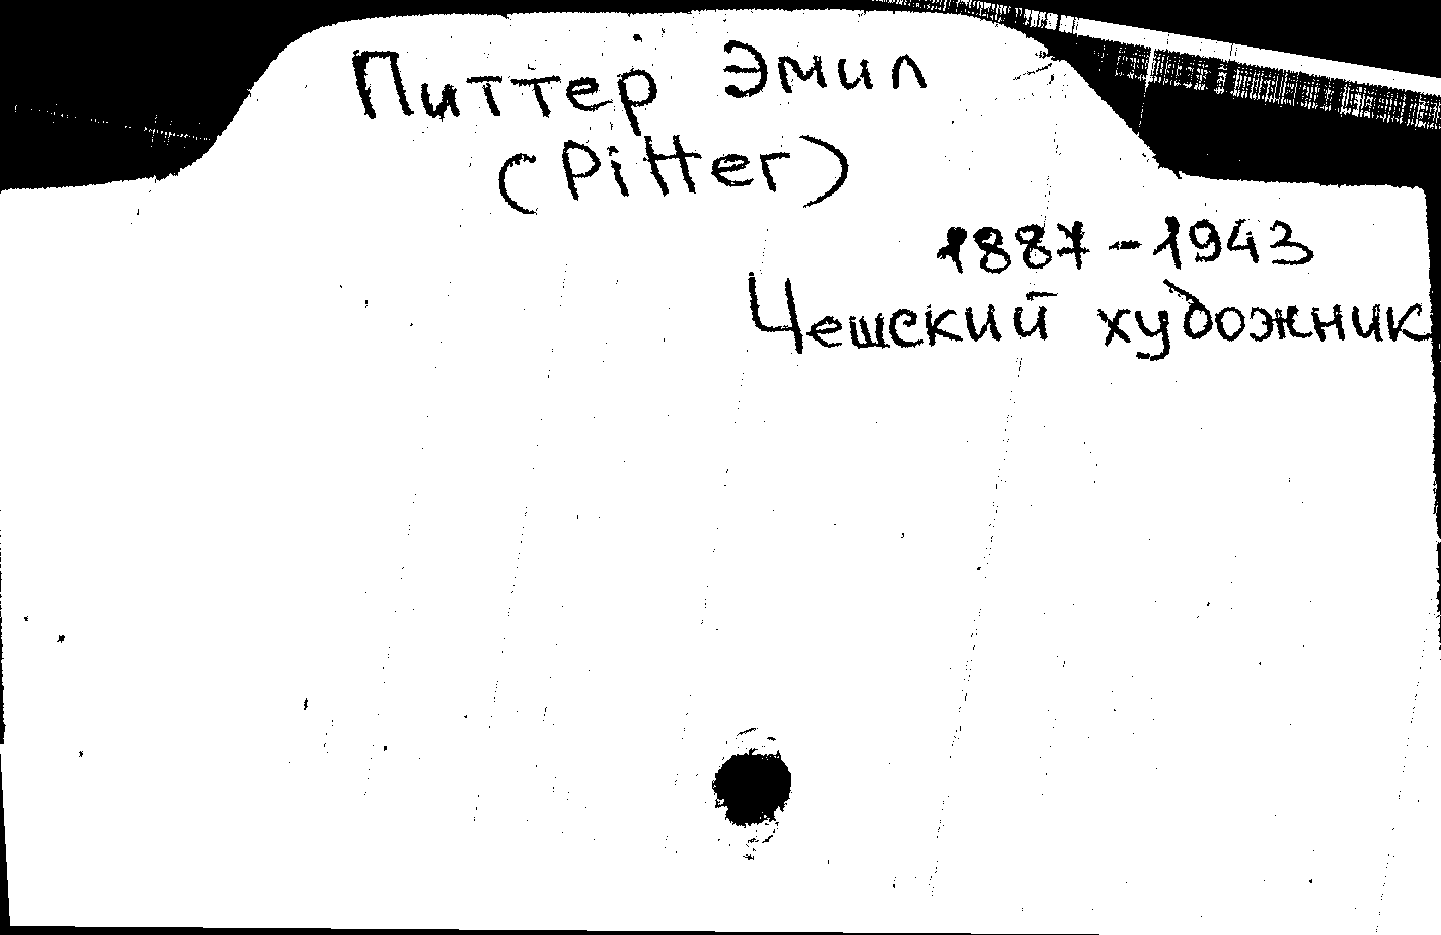 Питтер Эмил
(Pitter)
1887-1943
Чешский художник